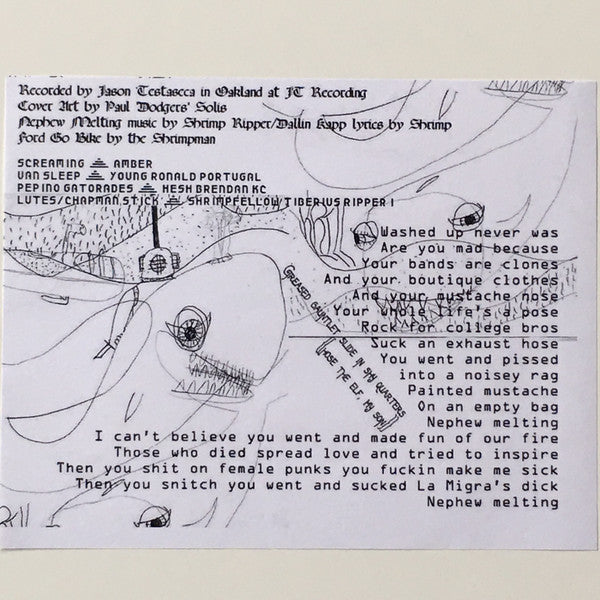 Recorded by Jason Testasecca in Oakland at JT Recording
Cover Art by Paul Dodgers' Solis
Nephew Melting music by Shrimp Ripper/Dallin Kapp lyrics by Shrimp
Ford Go Bike by the Shrimpman
SCREAMING AMBER
VAN SLEEP YOUNG RONALD PORTUGAL
PEPINO GATORADES HESH BRENDAN KC
LUTES/CHAPMAN STICK SHRIMPFELLOW/TIBERIUS RIPPER I
Washed up never was
Are you mad because
Your bands are clones
And your boutique clothes
And your mustache nose
Your whole life's a pose
Rock for college bros
Suck an exhaust hose
You went and pissed
into a noisey rag
Painted mustache
On an empty bag
Nephew melting
(GREASED GAUNTLET SLIDE IN SMY QUARTERS
(HOSE THE ELF, MY SON)
I can't believe you went and made fun of our fire
Those who died spread love and tried to inspire
Then you shit on female punks you fuckin make me sick
Then you snitch you went and sucked La Migra's dick
Nephew melting